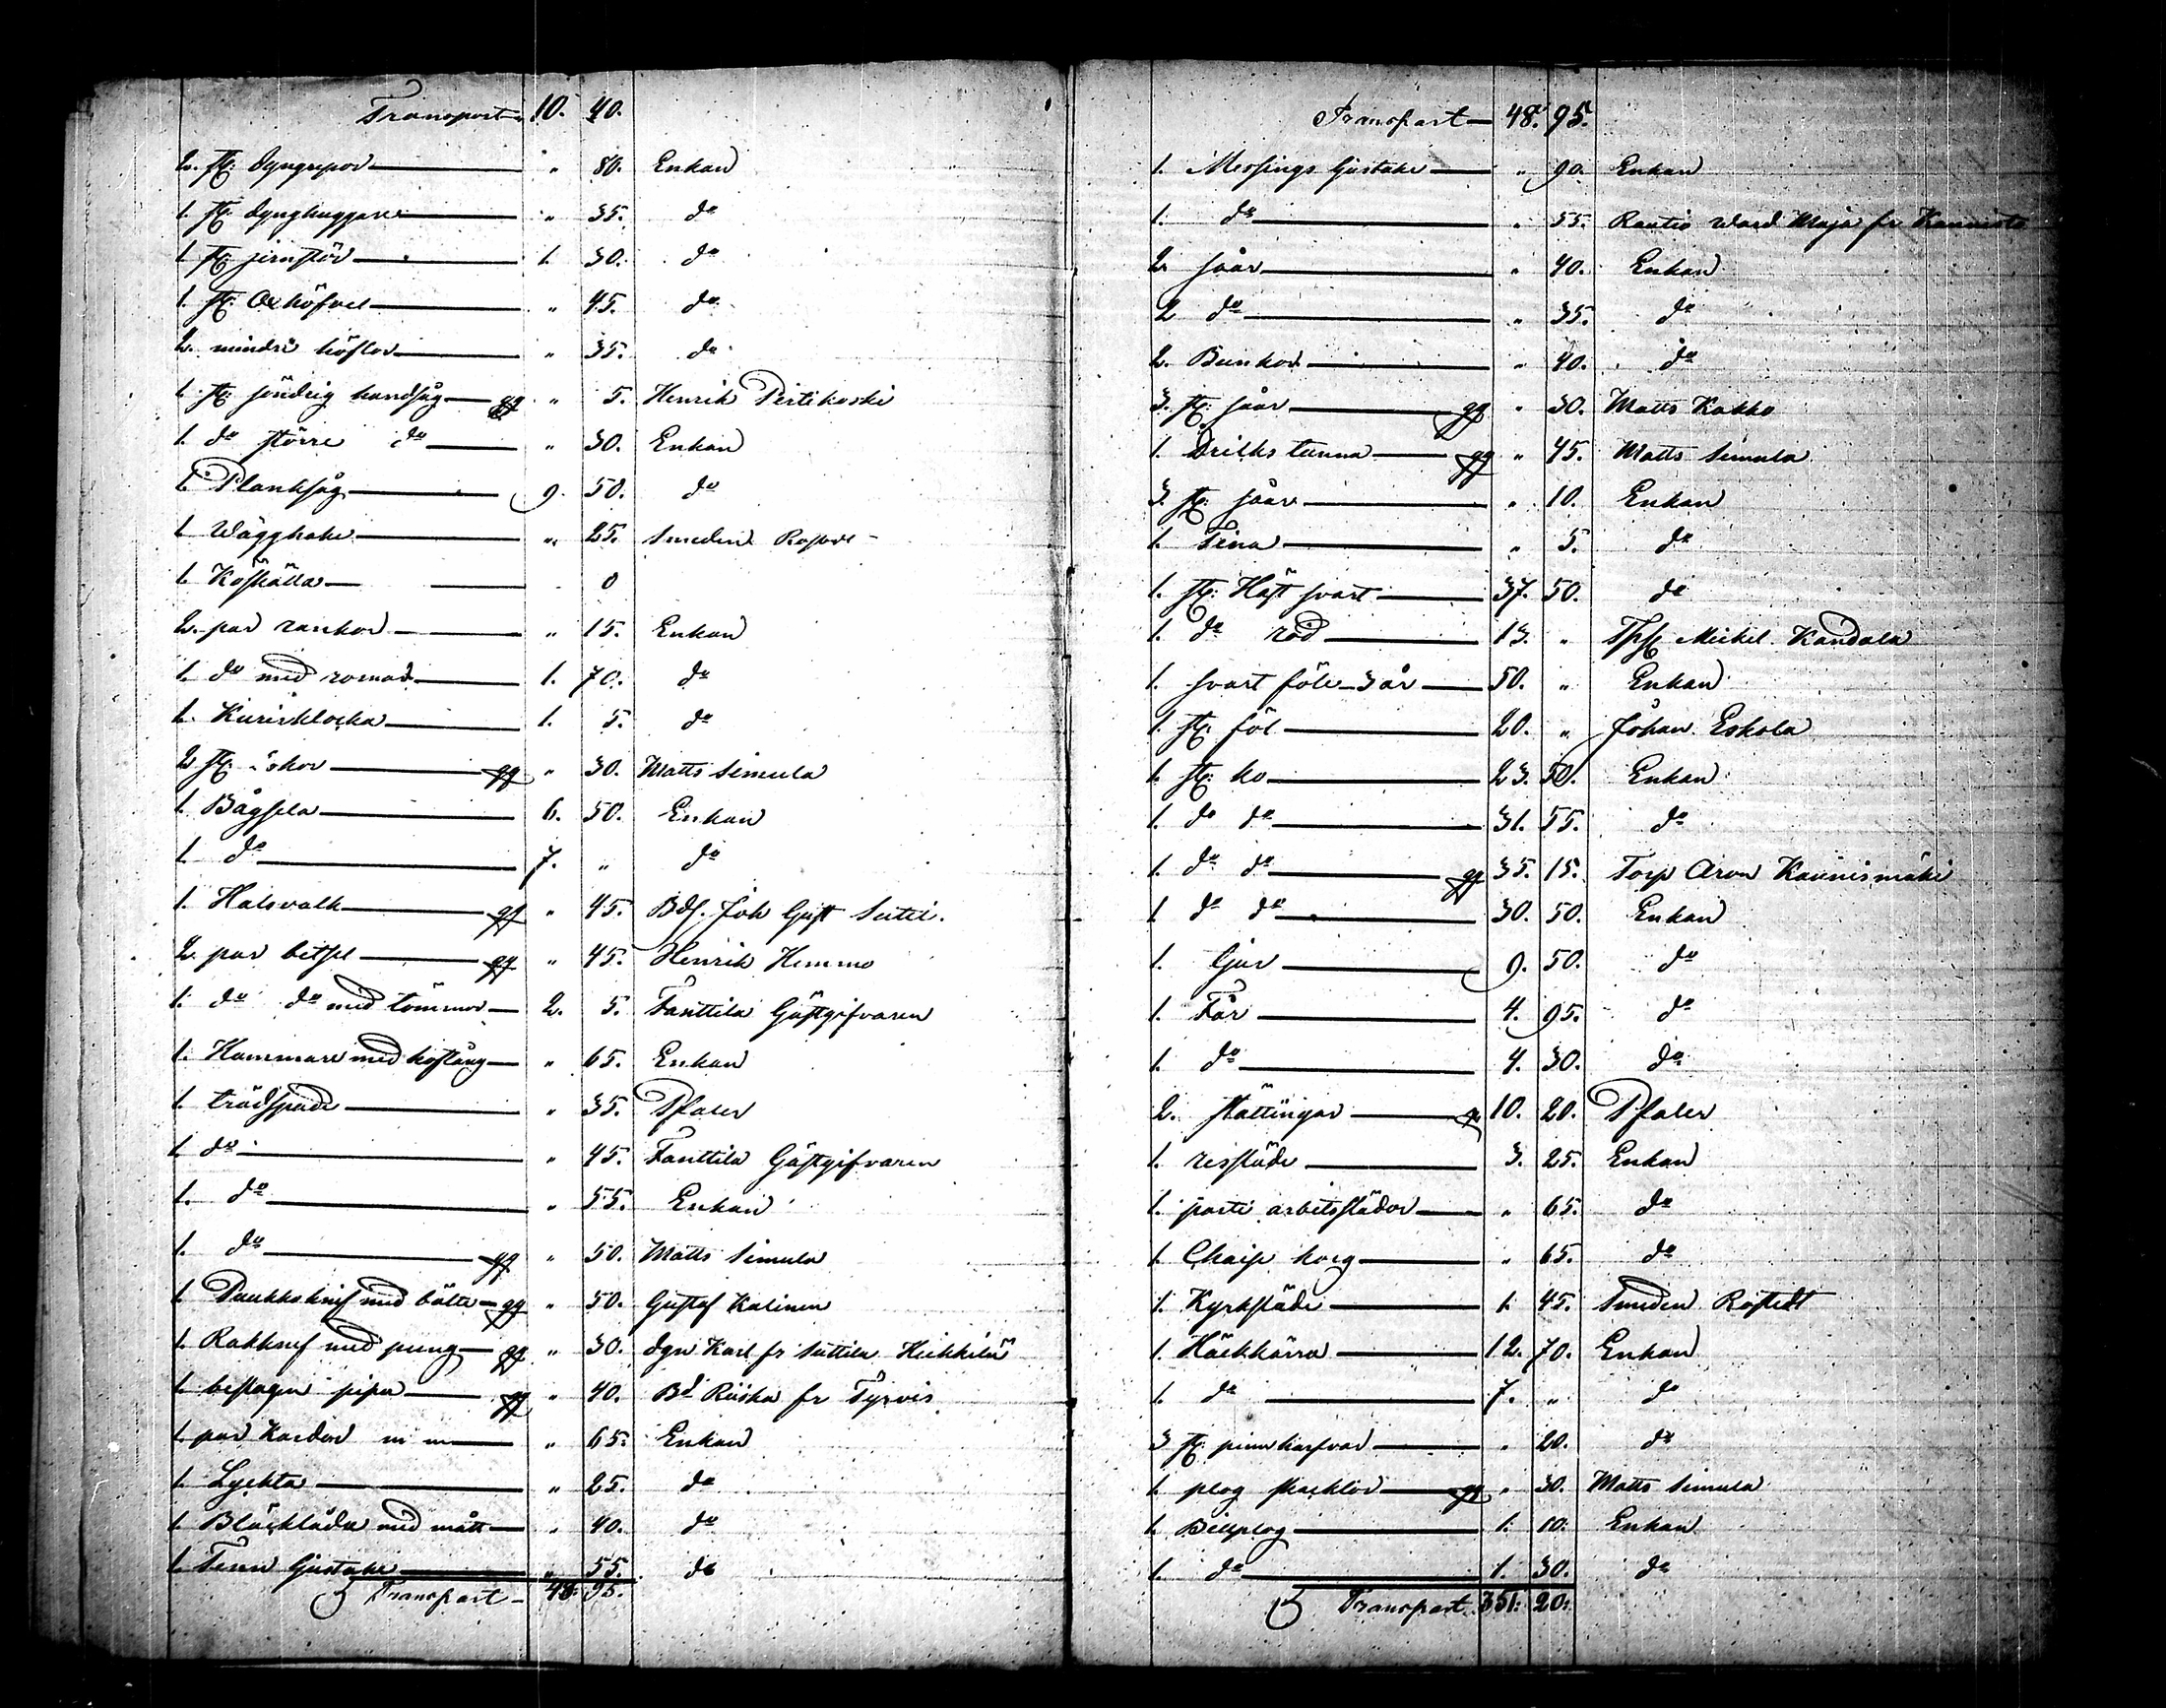 Transport 10. 40.
2. st: dyngrepor " 80. Enkan
1. st: dynghuggare " 35. do
1 st: jernstör 1. 30. do
1. st: Oxhöfvel " 45. do
2. mindre höflar " 35. do
1. st: söndrig handsåg gg " 5. Henrik Pertikoski
1. do större do " 30. Enkan
1. Planksåg 9. 50. do
1 Wägghake " 25. Smeden
1. Koskälla 0
2. par rankor " 15. Enkan
1. do med 1. 70. do
1. 1. 5. do
2 st: gg " 30. Matts Simula
1. Bågsela 6. 50. Enkan
1 do 7. " do
1 Halsvalk gg " 45. Bds. Joh Gust Sutei.
2. par betsel gg " 45. Henrik Hemmo
1. do do med tömmar 2. 5. Fanttila Gästgifvaren
1. Hammare med hoftång " 65. Enkan
1. trädspade " 35. Pfaler
1 do " 45. Fanttila Gästgifvaren
1. do " 55. Enkan
1. do gg " 50. Matts Simula
1 med bälte gg " 50. Gustaf Kalinen
1. Rakknif med pung gg " 30. dgn Karl fr Suttila Heikkilä
1 beslagen pipa gg " 40. Bd Räiska fr Tyrvis
1. par Kardor m m " 65. Enkan
1 Lyckta " 25. do
1. Bläcklåda med mått " 40. do
1. Tenn Ljustake " 55. do
Transport 48. 95.
Transport 48. 95.
1. Messings ljustake " 90. Enkan
1. do " 55. Rautio Ward Maja fr
2. såar " 40. Enkan
2 do " 35. do
2. Bunkar " 40. do
3. st: såar gg " 30. Matts Kakko
1. Dricks tunna gg " 45. Matts Simula
3. st: såar " 10. Enkan
1. Tina " 5. do
1. st: Häst svart 37. 50. do
1. do röd 13. " Mickel Kandola
1. svart föle 3 år 50. " Enkan
1 st. föl 20. " Johan Eskola
1. st: ko 23. 50. Enkan
1. do do 31. 55. do
1. do do gg 35. 15. Torp Aron Kaunismäki
1 do do 30. 50. Enkan
1. tjur 9. 50. do
1. Får 4. 95. do
1. do 4. 30. do
2. slättingar g 10. 20. Pfaler
1. ressläde 3. 25. Enkan
1. parti arbetsslädar " 65. do
1 Chaise korg " 65. do
1. Kyrksläde 1. 45. Smeden Rostedt
1. Häckkärra 12. 70. Enkan
1. do 7. " do
3 st: pinnharfvar " 20. do
1 plog skacklor gg " 30. Matts Simula
1. Billplog 1. 10. Enkan
1. do 1. 30. do
Transport 351. 20.